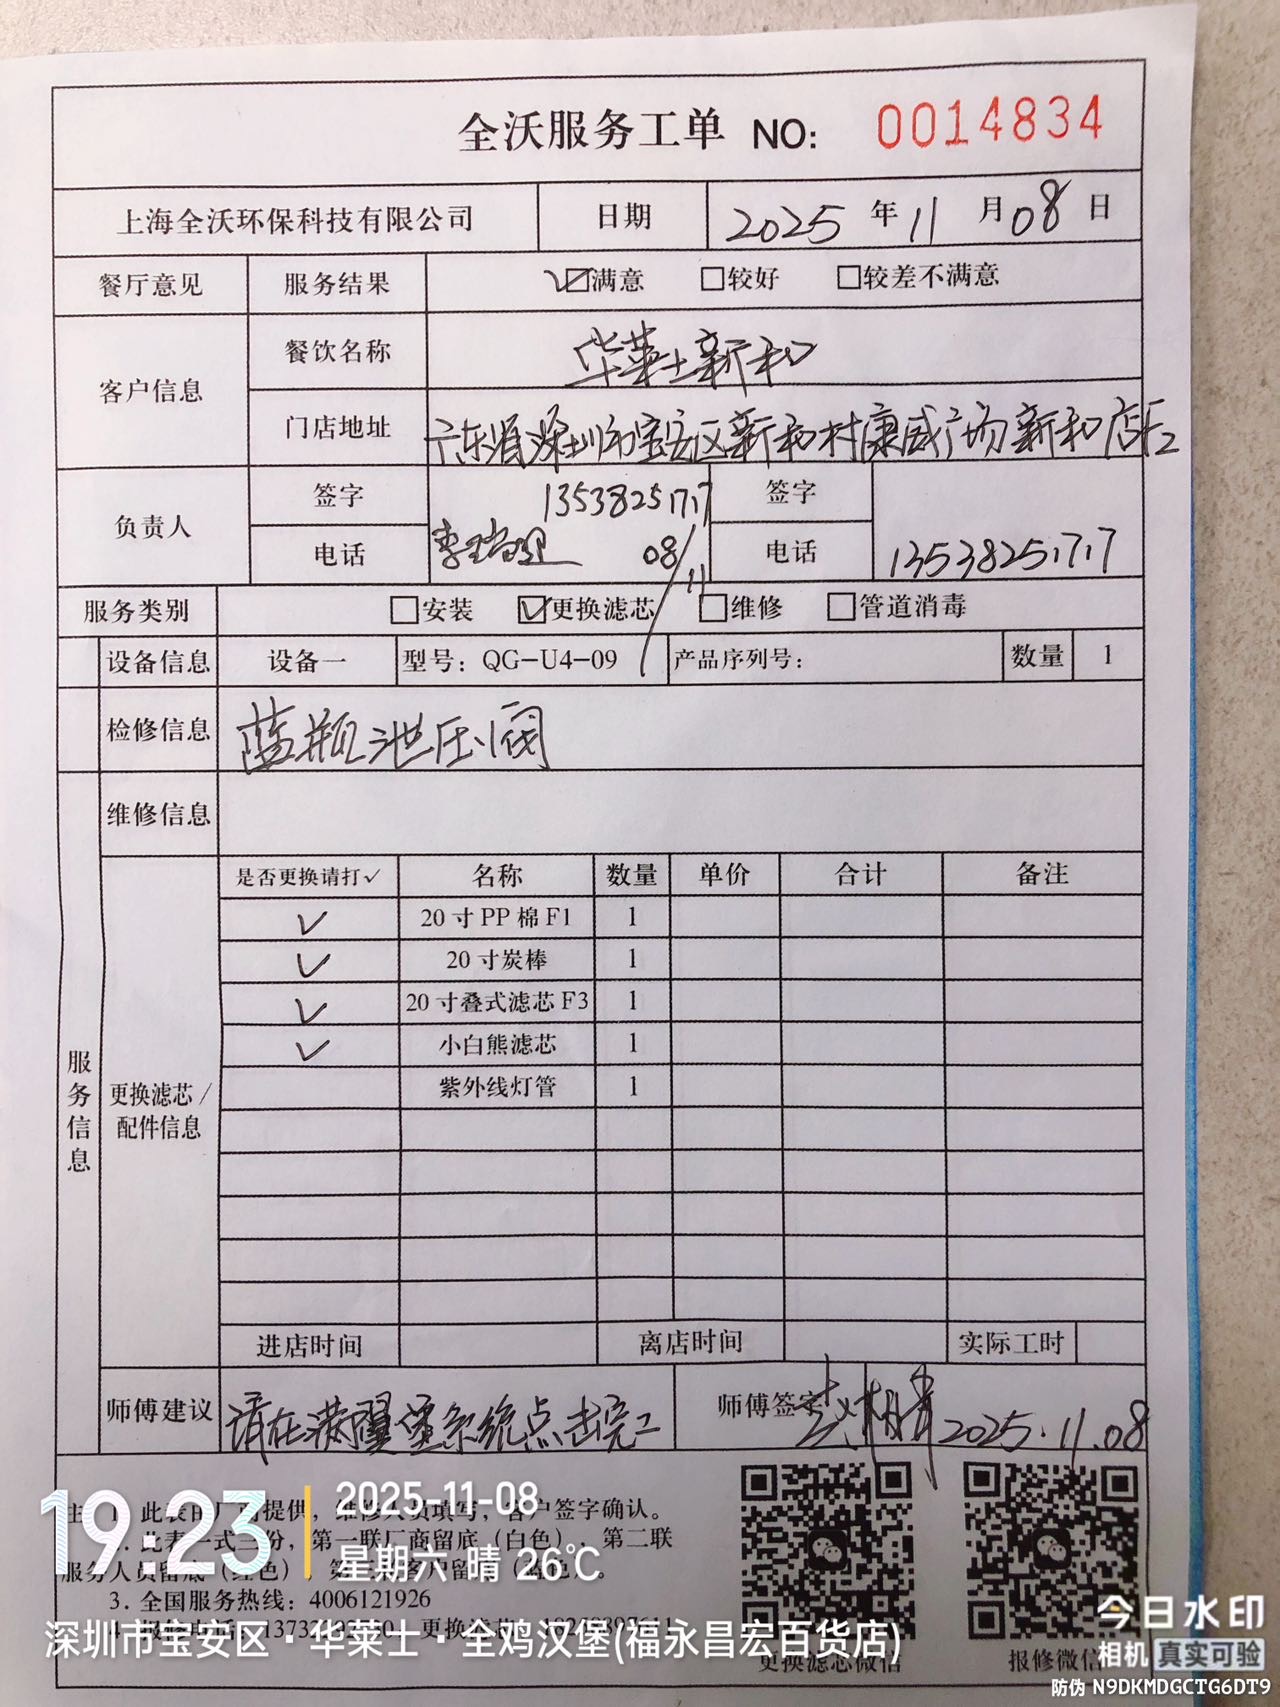 全沃服务工单 NO: 0014834
上海全沃环保科技有限公司 日期 2025 年 11 月 08 日
餐厅意见 服务结果 ☑满意 □较好 □较差不满意
客户信息 餐饮名称 华莱士新和
门店地址 广东省深圳市宝安区新和村康威广场新和店
负责人 签字 13538251717 签字
电话 08/11 电话 13538251717
服务类别 □安装 ☑更换滤芯 □维修 □管道消毒
设备信息 设备一 型号：QG-U4-09 产品序列号： 数量 1
检修信息 蓝瓶泄压阀
维修信息
服务信息
更换滤芯/配件信息
是否更换请打✓ 名称 数量 单价 合计 备注
✓ 20寸PP棉F1 1
✓ 20寸炭棒 1
✓ 20寸叠式滤芯F3 1
✓ 小白熊滤芯 1
紫外线灯管 1
进店时间 离店时间 实际工时
师傅建议 请在满翼堡系统点击完工 师傅签字 2025.11.08
此表由厂商提供，维修人员填写，客户签字确认。
此表一式三份，第一联厂商留底（白色），第二联
服务人员留底（红色），
3. 全国服务热线：4006121926
更换滤芯微信 报修微信
19:23 2025-11-08
星期六 晴 26℃
深圳市宝安区·华莱士·全鸡汉堡(福永昌宏百货店)
今日水印
相机 真实可验
防伪 N9DKMDGCTG6DT9